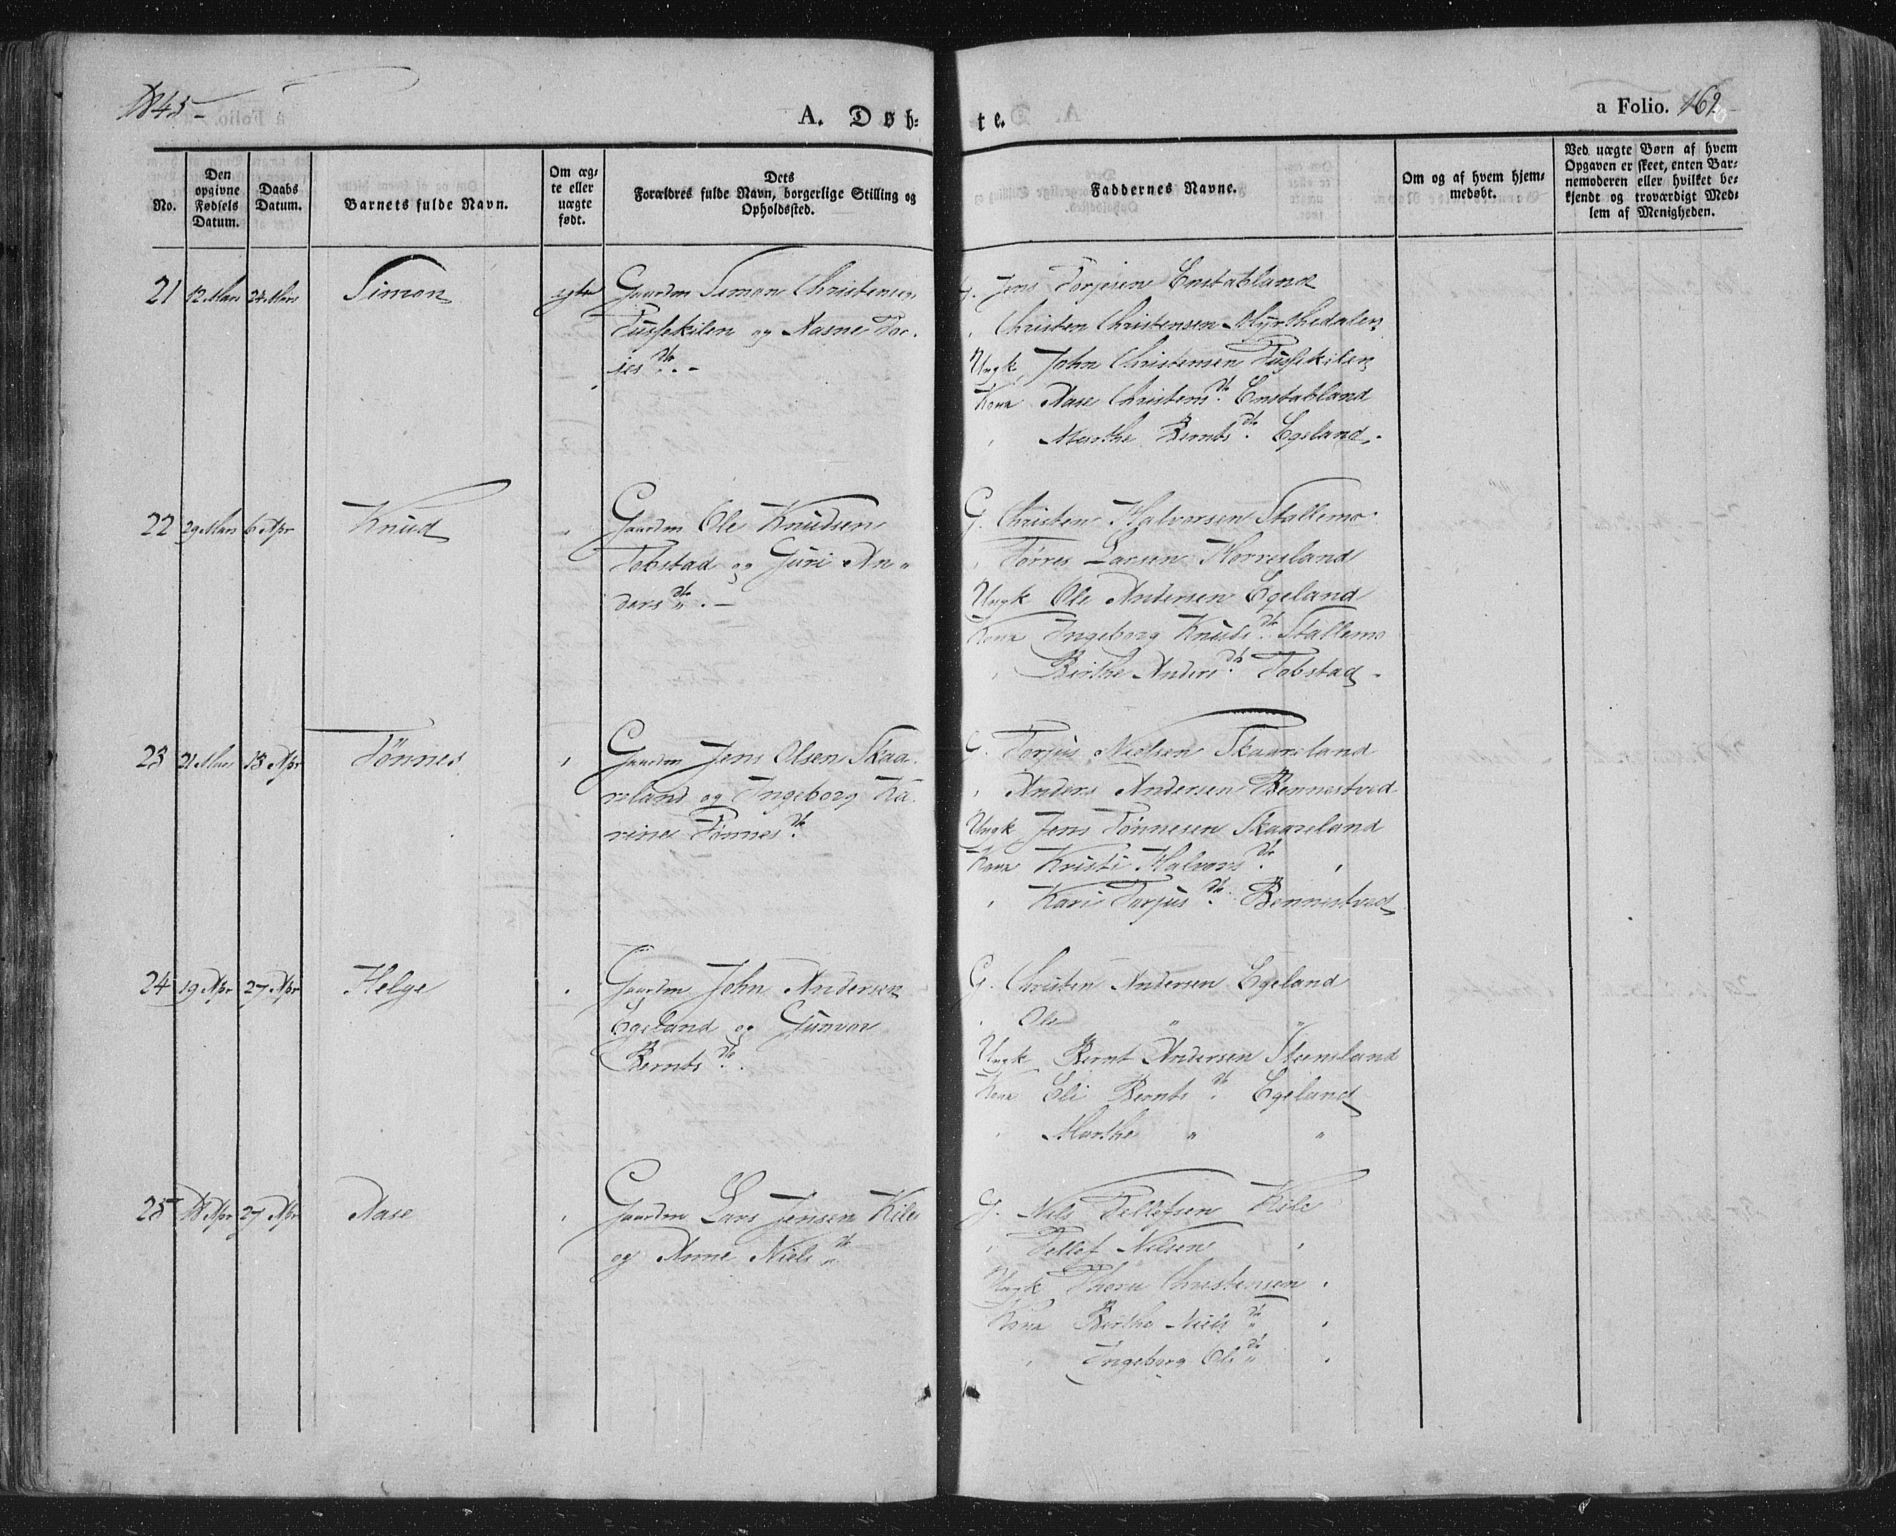 1845
A. Døb-
te.
a Folio. 162
No.
Den opgivne Fødsels Datum.
Daabs Datum.
Barnets fulde Navn.
Om ægte eller uægte født.
Dets Forældres fulde Navn, borgerlige Stilling og Opholdssted.
Faddernes Navne.
Om og af hvem hjemmedøbt.
Ved uægte Børn af hvem Opgaven er skeet, enten Barnemoderen eller hvilket bekjendt og troværdigt Medlem af Menigheden.
21 12 Mars 24 Mars Simon ægte Gaardm Simon Christensen
Tufsekilen og Aasne Tor-
jesdtr. -
G. Jens Torjesen Enstabland
Christen Christensen Myrthedalen
Ungk John Christensen Tufsekilen
Kone Aase Christensdtr. Enstabland
" Marthe Berntsdtr. Egeland.
22 29 Mars 6 Apr Knud " Gaardm Ole Knudsen
Tobstad og Guri An-
dersdtr. -
G. Christen Halvorsen Stallemo
" Tørres Larsen Horresland
Ungk Ole Andersen Egeland
Kone Ingeborg Knudsdtr. Stallemo
" Birthe Andersdtr. Tobstad.
23 21 Mars 13 Apr Tønnes " Gaardm Jens Olsen Skaa-
reland og Ingeborg Ka-
rine Tønnesdtr.
G. Torjus Nielsen Skaareland
" Anders Andersen Bennestved
Ungk Jens Tønnesen Skaareland
Kone Kristi Halvorsdtr. "
" Kari Torjusdtr. Bennestved
24 19 Apr 27 Apr Helge " Gaardm John Andersen
Egeland og Gunvor
Berntsdtr.
G. Christen Andersen Egeland
" Ole " "
Ungk Bernt Andersen Steensland
Kone Eli Berntsdtr. Egeland
" Marthe " "
25 18 Apr 27 Apr Aase " Gaardm Lars Jensen Kile
og Anne Nielsdtr
G. Nils Tellefsen Kile
" Tellef Nilsen "
Ungk Christensen "
Kone Berthe Nielsdtr "
" Ingeborg Olsdtr "